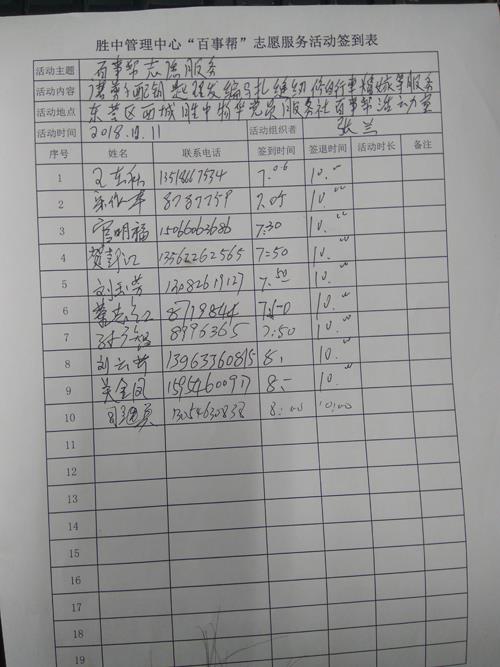 胜中管理中心“百事帮”志愿服务活动签到表
活动主题 百事帮志愿服务
活动内容 磨剪子 配钥 理发 编 扎 缝纫 修自行车 等服务
活动地点 东营区西城胜中物华党员服务社百事帮活动室
活动时间 2018.10.11 活动组织者 张兰
序号 姓名 联系电话 签到时间 签退时间 活动时长 备注
1 王东 7.06 10.00
2 8787759 7.05 10.00
3 官明福 15066063686 7:30 10.00
4 贺 13562262565 7:50 10.00
5 刘玉芳 13082619127 7.50 10.00
6 董志 8719844 7:50 10.00
7 8796365 7:50 10.00
8 刘云 13963360815 8: 10.00
9 吴金凤 15954600917 8:- 10.00
10 司 13054630838 8:00 10:00
11
12
13
14
15
16
17
18
19